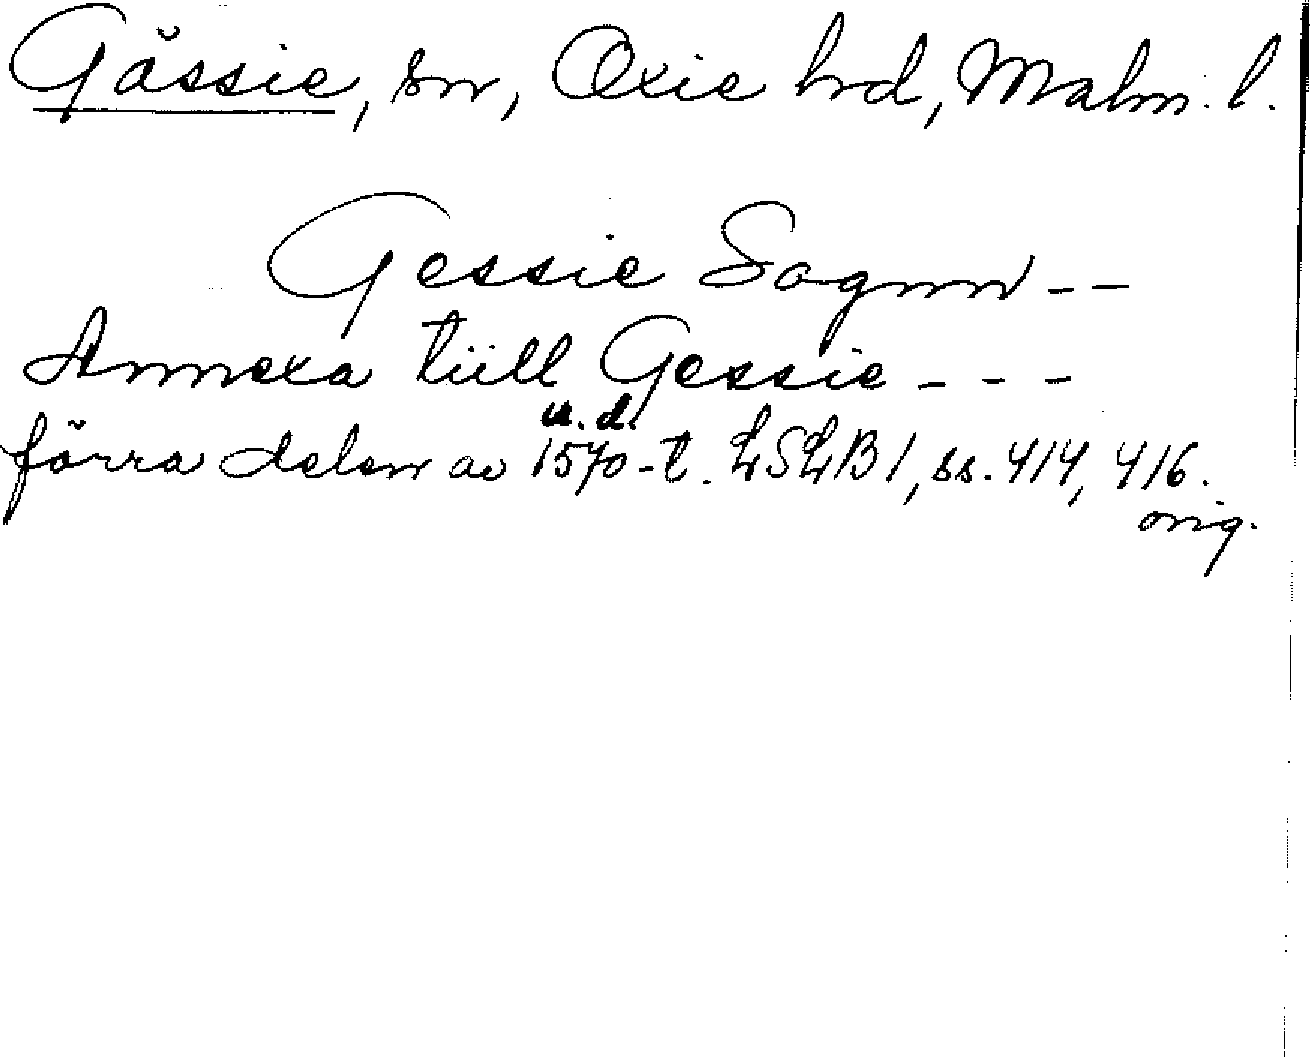 Gässie, sn, Oxie hrd, Malm. l.
Gessie Sognn --
Annexa tiill Gessie ---
u. d.
förra delen av 1570-t. LSLB 1, ss. 414, 416.
orig.